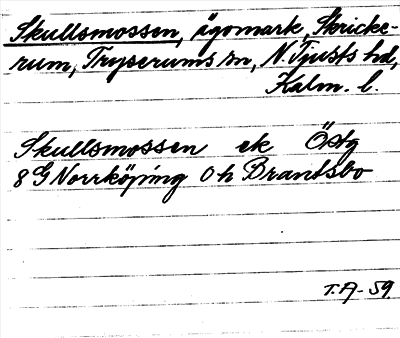 Skullsmossen, ägomark, Skricke-
rum, Tryserums sn, N. Tjusts hd,
Kalm. l.
Skullsmossen ek Östg
8 G Norrköping 0 h Brantsbo
T.A-59.